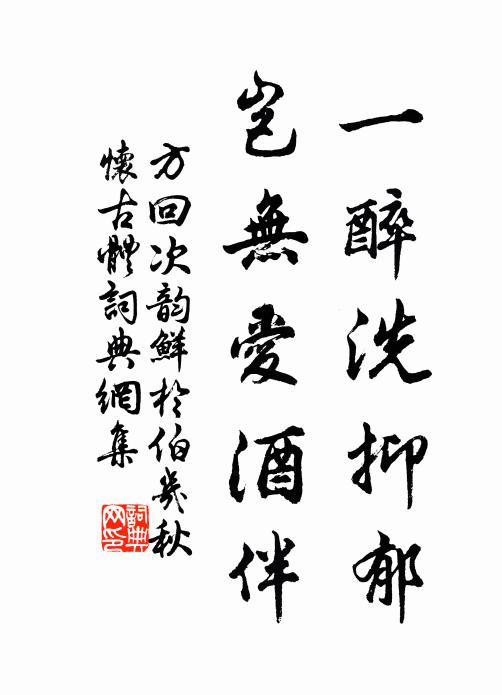 一醉洗抑郁
豈無愛酒伴
方回次韵鮮於伯幾秋
懷古體詞典網集
詞典
网印